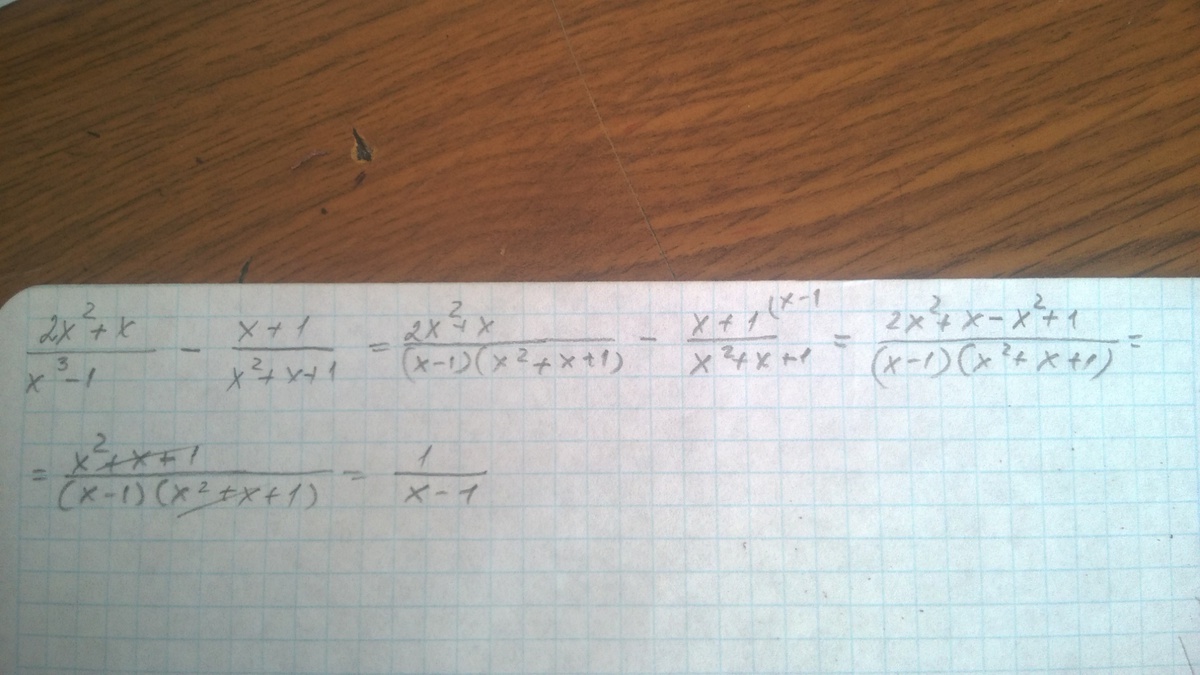 (2x²+x)/(x³-1) - (x+1)/(x²+x+1) = (2x²+x)/((x-1)(x²+x+1)) - (x+1 (x-1)/(x²+x+1) = (2x²+x-x²+1)/((x-1)(x²+x+1)) =
= (x²+x+1)/((x-1)(x²+x+1)) = 1/(x-1)